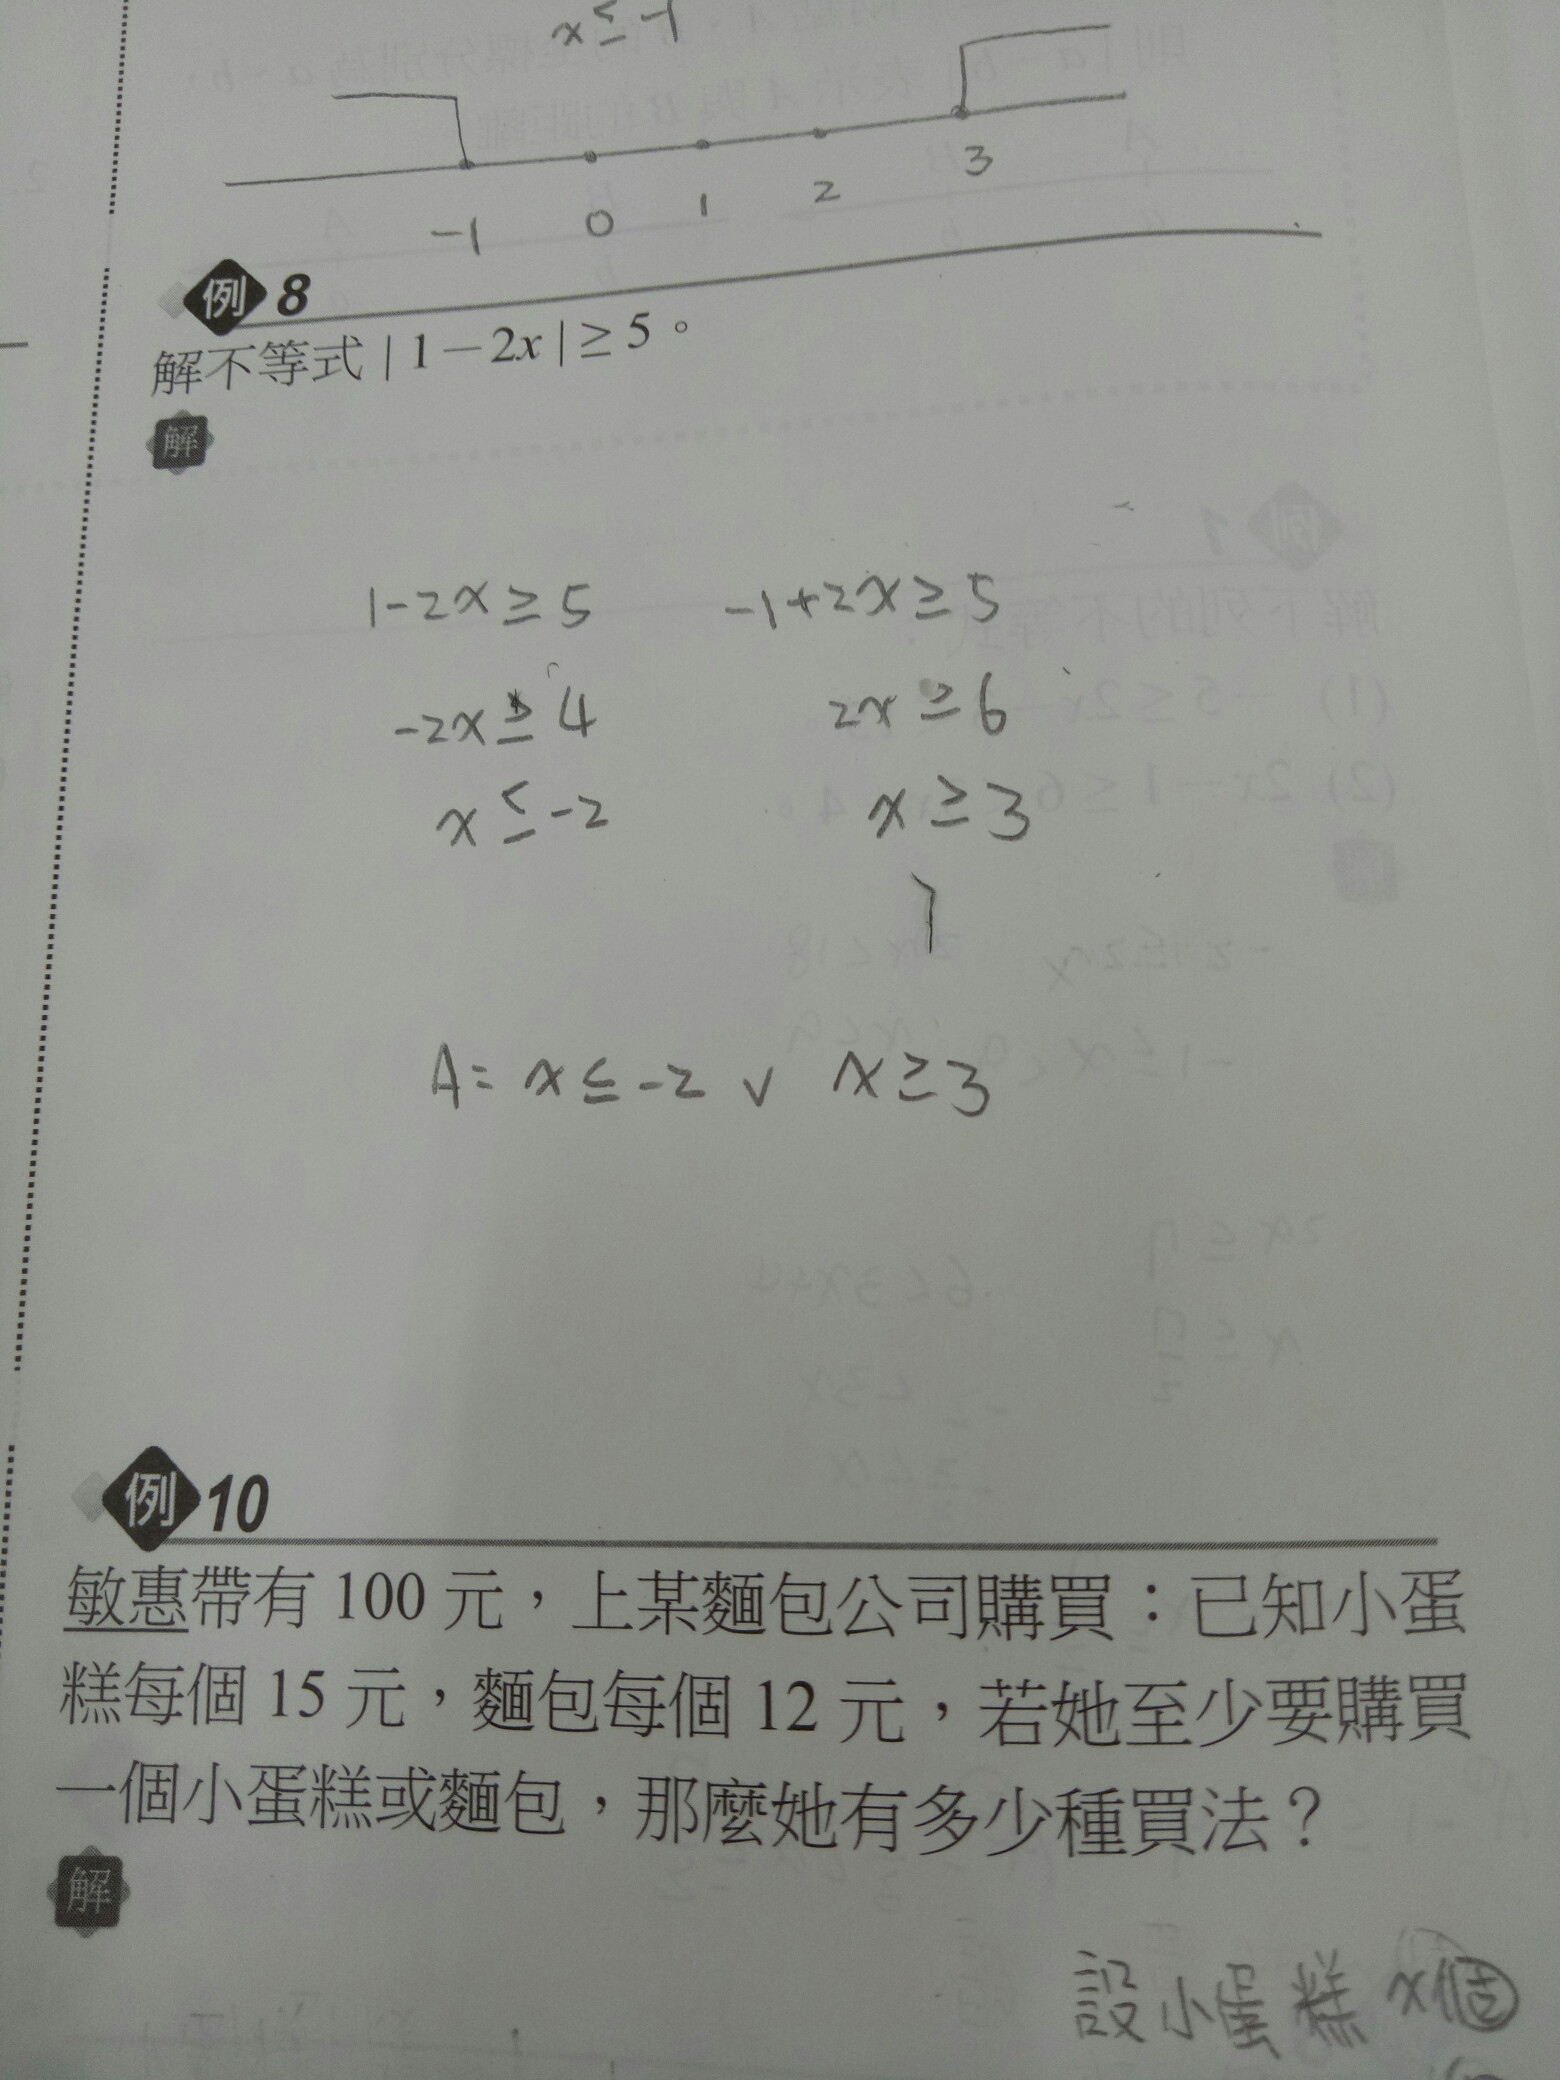 x≤-1
-1 0 1 2 3
例 8
解不等式 | 1－2x | ≥ 5。
解
1-2x≥5 -1+2x≥5
-2x≥4 2x≥6
x≤-2 x≥3
A= x≤-2 ∨ x≥3
例 10
敏惠帶有 100 元，上某麵包公司購買：已知小蛋
糕每個 15 元，麵包每個 12 元，若她至少要購買
一個小蛋糕或麵包，那麼她有多少種買法？
解
設小蛋糕 x個